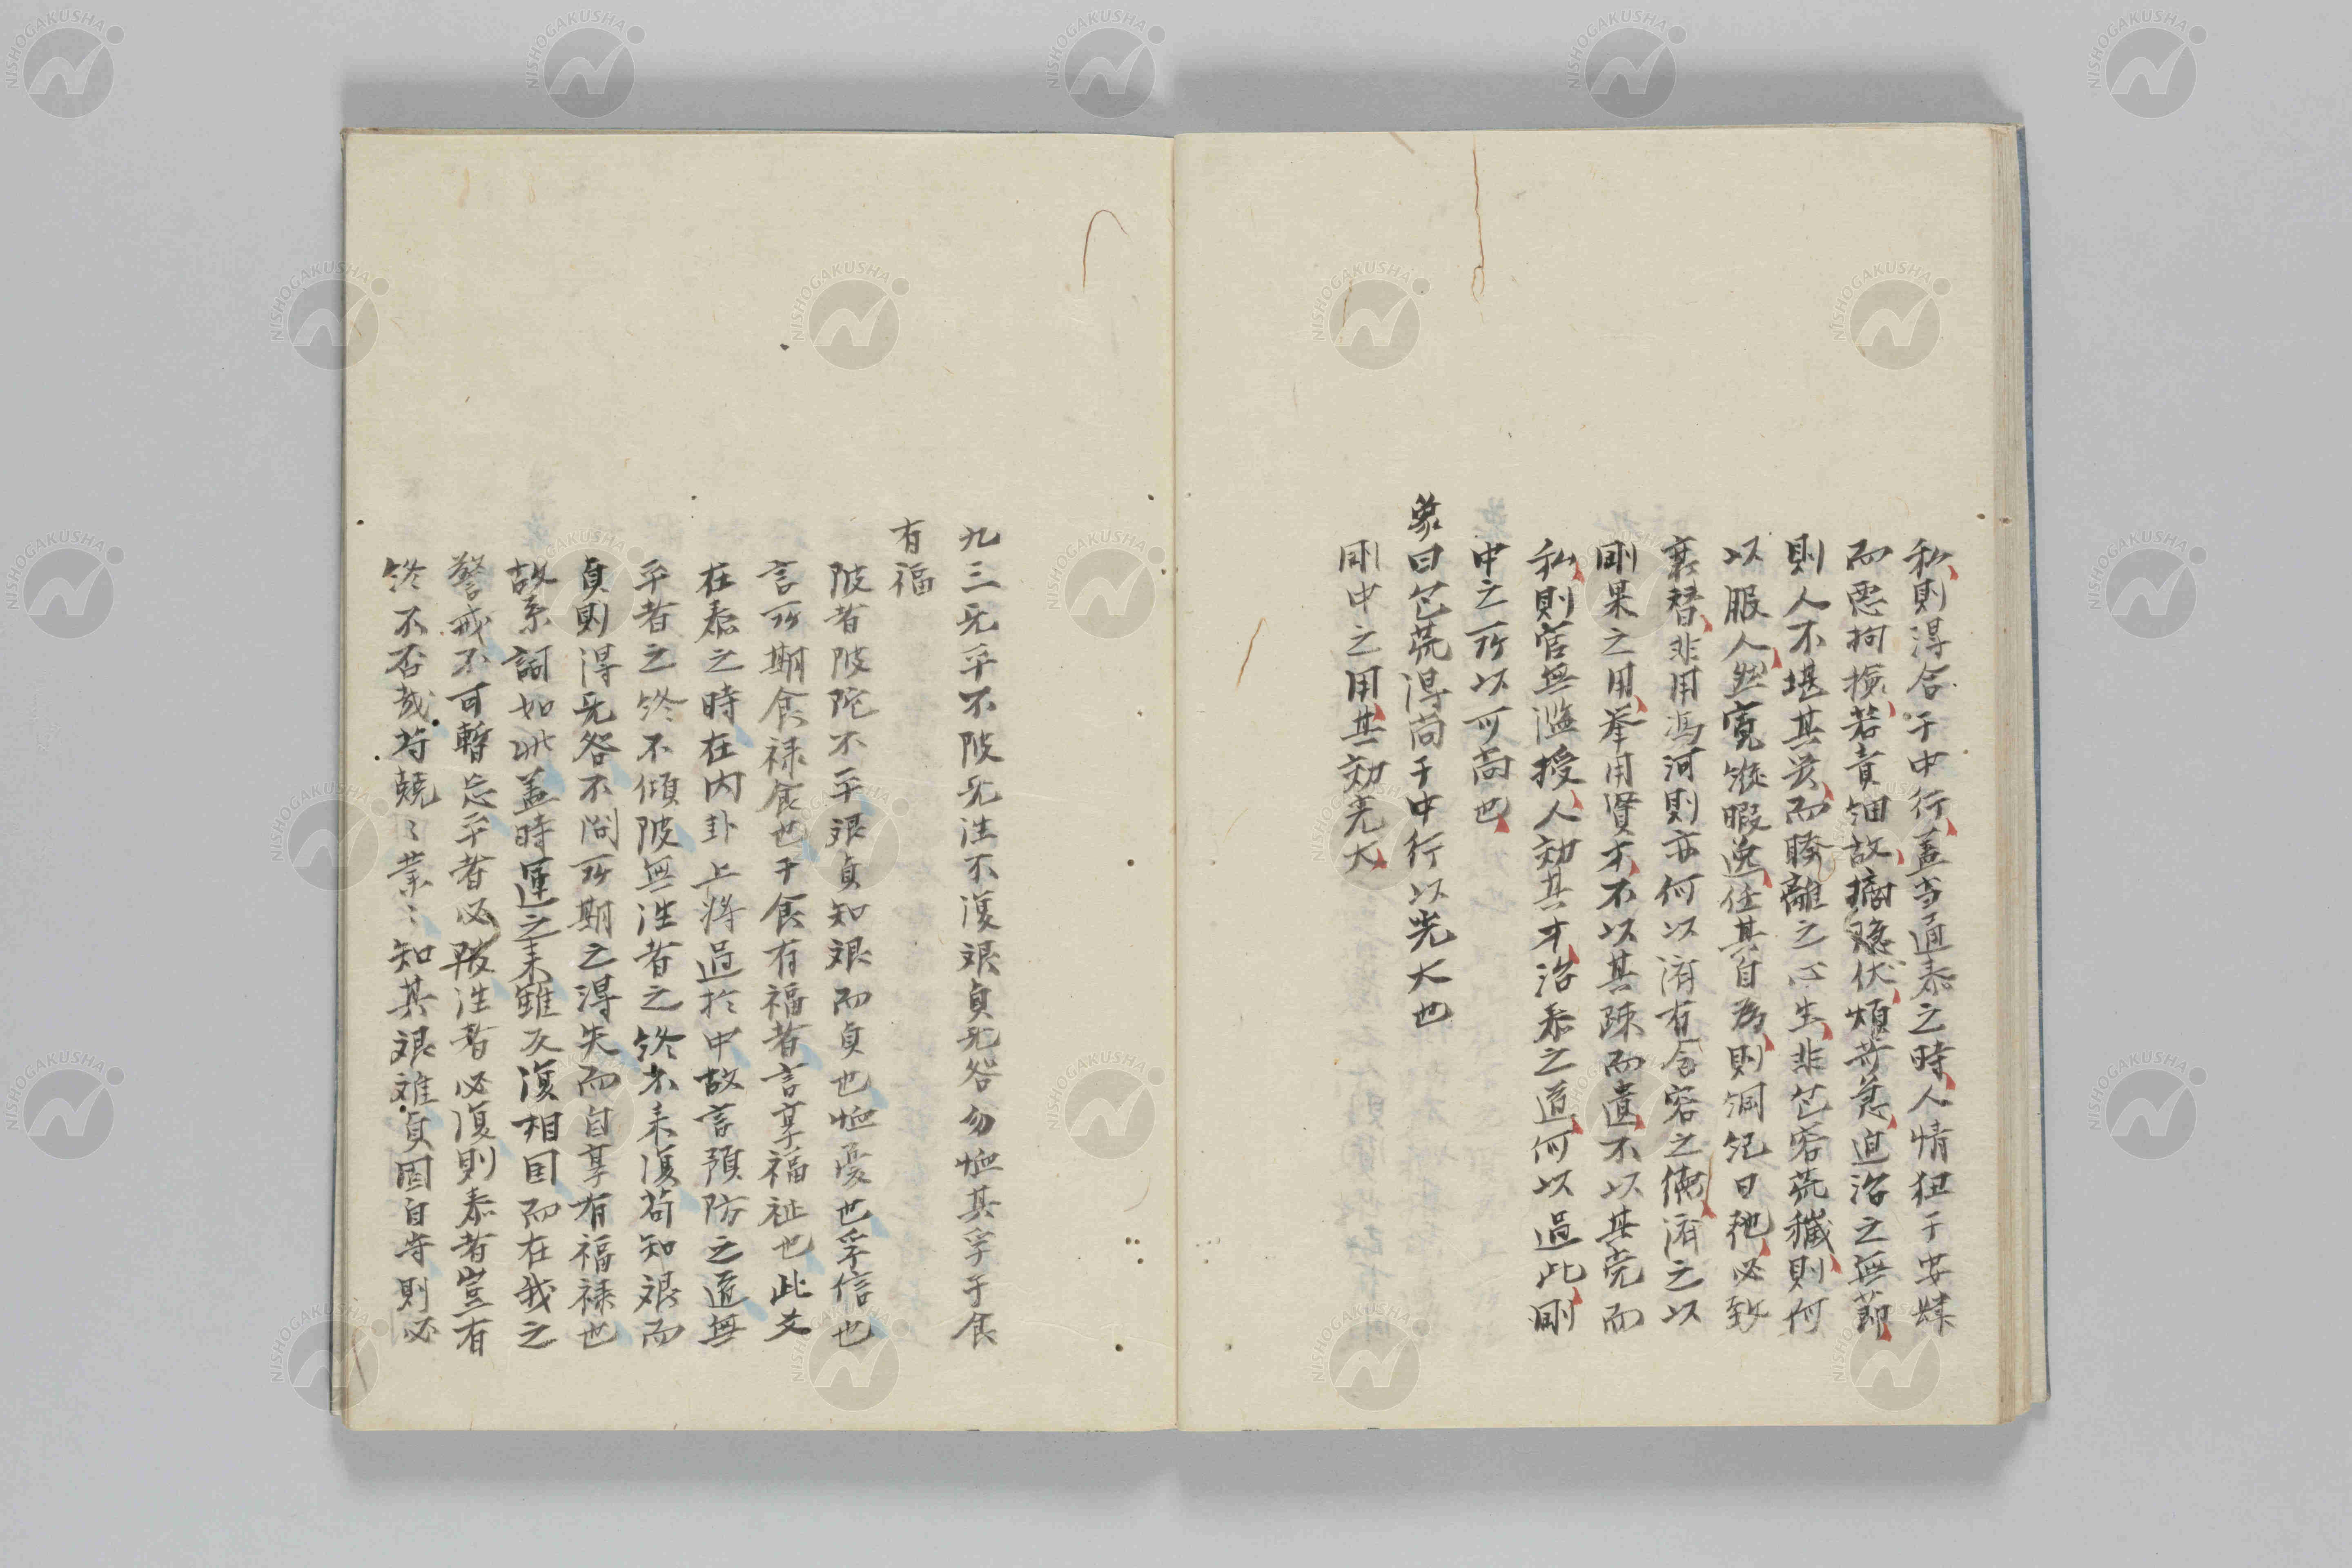 私則得合于中行蓋当通泰之時人情狃于安肆
而悪拘撿若責細故摘隐伏煩苛急迫治之無節
則人不堪其災而睽離之心生非包容荒穢則何
以服人然寛縦暇逸任其自為則綱紀日弛必致
衰替非用馮河則亦何以済有含容之備済之以
剛果之用挙用賢才不以其踈而遺不以其党而
私則官無濫授人効其才治泰之道何以過此剛
中之所以可尚也
象曰包荒得尚于中行以光大也
剛中之用其効光大
九三无平不陂无往不復艰貞无咎勿恤其孚于食
有福
陂者陂陀不平艰貞知艰而貞也恤憂也孚信也
言所期食禄食也于食有福者言享福祉也此爻
在泰之時在内卦上将過於中故言預防之道無
平者之終不傾陂無往者之終不来復苟知艰而
貞則得无咎不問所期之得失而自享有福禄也
故系詞如此蓋時運之来雖反復相因而在我之
警戒不可暫忘平者必陂往者必復則泰者豈有
終不否哉苻兢〻業〻知其艰难貞固自守則必
NISHOGAKUSHA